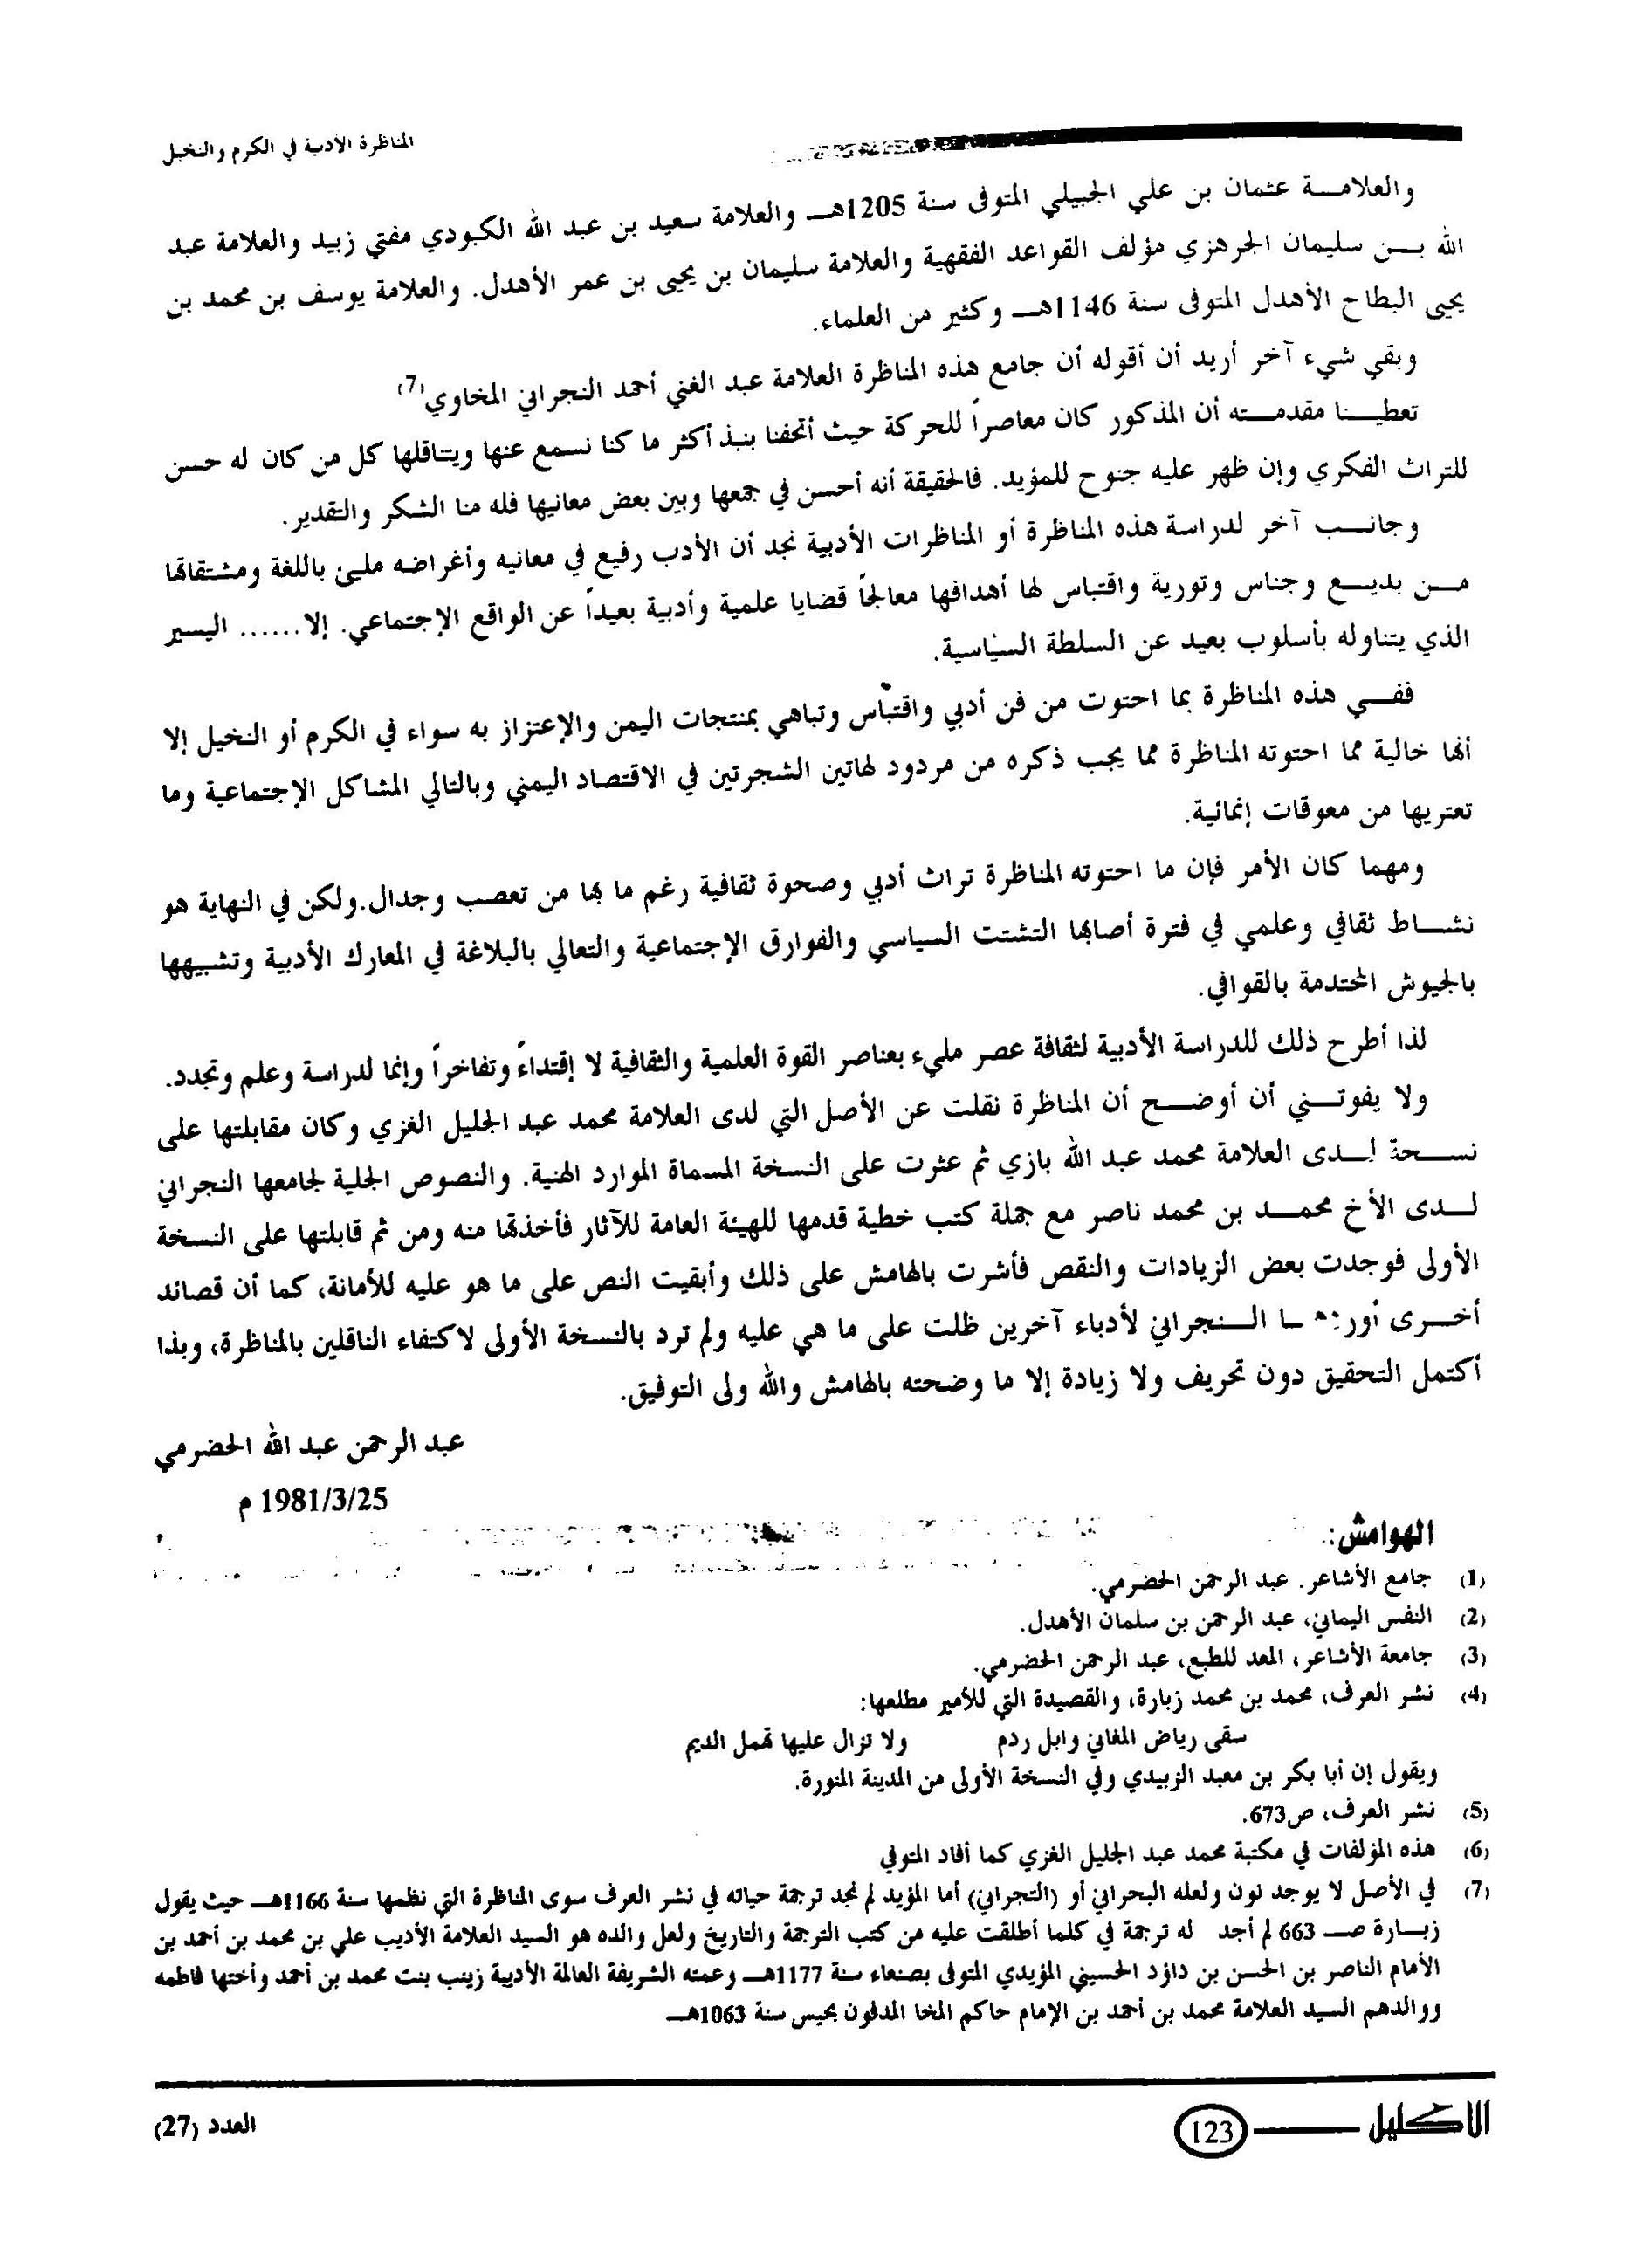 المناظرة الأدبية في الكرم والنخيل
والعلامـــة عثمان بن علي الجبيلي المتوفى سنة 1205هـــ والعلامة سعيد بن عبد الله الكبودي مفتي زبيد والعلامة عبد
الله بـــن سليمان الجرهزي مؤلف القواعد الفقهية والعلامة سليمان بن يحيى بن عمر الأهدل. والعلامة يوسف بن محمد بن
يحيى البطاح الأهدل المتوفى سنة 1146هـــ وكثير من العلماء.
وبقي شيء آخر أريد أن أقوله أن جامع هذه المناظرة العلامة عبد الغني أحمد النجراني المخاوي(7)
تعطيـــنا مقدمـــته أن المذكور كان معاصراً للحركة حيث أتحفنا بنبذ أكثر ما كنا نسمع عنها ويتناقلها كل من كان له حسن
للتراث الفكري وإن ظهر عليه جنوح للمؤيد. فالحقيقة أنه أحسن في جمعها وبين بعض معانيها فله منا الشكر والتقدير.
وجانـــب آخر لدراسة هذه المناظرة أو المناظرات الأدبية نجد أن الأدب رفيع في معانيه وأغراضه ملئ باللغة ومشتقاتها
مـــن بديـــع وجناس وتورية واقتباس لها أهدافها معالجاً قضايا علمية وأدبية بعيداً عن الواقع الإجتماعي. إلا...... اليسير
الذي يتناوله بأسلوب بعيد عن السلطة السياسية.
ففـــي هذه المناظرة بما احتوت من فن أدبي واقتباس وتباهي بمنتجات اليمن والإعتزاز به سواء في الكرم أو النخيل إلا
أنها خالية مما احتوته المناظرة مما يجب ذكره من مردود لهاتين الشجرتين في الاقتصاد اليمني وبالتالي المشاكل الإجتماعية وما
تعتريها من معوقات إنمائية.
ومهما كان الأمر فإن ما احتوته المناظرة تراث أدبي وصحوة ثقافية رغم ما بها من تعصب وجدال.ولكن في النهاية هو
نشـــاط ثقافي وعلمي في فترة أصابها التشتت السياسي والفوارق الإجتماعية والتعالي بالبلاغة في المعارك الأدبية وتشبيهها
بالجيوش المحتدمة بالقوافي.
لذا أطرح ذلك للدراسة الأدبية لثقافة عصر مليء بعناصر القوة العلمية والثقافية لا إقتداءً وتفاخراً وإنما لدراسة وعلم وتجدد.
ولا يفوتـــني أن أوضـــح أن المناظرة نقلت عن الأصل التي لدى العلامة محمد عبد الجليل الغزي وكان مقابلتها على
نســـخة لـــدى العلامة محمد عبد الله بازي ثم عثرت على النسخة المسماة الموارد الهنية. والنصوص الجلية لجامعها النجراني
لـــدى الأخ محمـــد بن محمد ناصر مع جملة كتب خطية قدمها للهيئة العامة للآثار فأخذتها منه ومن ثم قابلتها على النسخة
الأولى فوجدت بعض الزيادات والنقص فأشرت بالهامش على ذلك وأبقيت النص على ما هو عليه للأمانة، كما أن قصائد
أخـــرى الـــنجراني لأدباء آخرين ظلت على ما هي عليه ولم ترد بالنسخة الأولى لاكتفاء الناقلين بالمناظرة، وبذا
أكتمل التحقيق دون تحريف ولا زيادة إلا ما وضحته بالهامش والله ولى التوفيق.
عبد الرحمن عبد الله الحضرمي
1981/3/25 م
الهوامش:
(1) جامع الأشاعر. عبد الرحمن الحضرمي.
(2) النفس اليماني، عبد الرحمن بن سلمان الأهدل.
(3) جامعة الأشاعر، المعد للطبع، عبد الرحمن الحضرمي.
(4) نشر العرف، محمد بن محمد زبارة، والقصيدة التي للأمير مطلعها:
سقى رياض المغاني وابل ردم ولا تزال عليها تهمل الديم
ويقول إن أبا بكر بن معبد الزبيدي وفي النسخة الأولى من المدينة المنورة.
(5) نشر العرف، ص673.
(6) هذه المؤلفات في مكتبة محمد عبد الجليل الغزي كما أفاد المتوفي
(7) في الأصل لا يوجد نون ولعله البحراني أو (النجراني) أما المؤيد لم نجد ترجمة حياته في نشر العرف سوى المناظرة التي نظمها سنة 1166هـــ حيث يقول
زبـــارة صـــ 663 لم أجد له ترجمة في كلما أطلقت عليه من كتب الترجمة والتاريخ ولعل والده هو السيد العلامة الأديب علي بن محمد بن أحمد بن
الأمام الناصر بن الحسن بن داؤد الحسيني المؤيدي المتوفى بصنعاء سنة 1177هـــ وعمته الشريفة العالمة الأديبة زينب بنت محمد بن أحمد وأختها فاطمه
ووالدهم السيد العلامة محمد بن أحمد بن الإمام حاكم المخا المدفون بحيس سنة 1063هـــ
الاكليل 123 العدد (27)